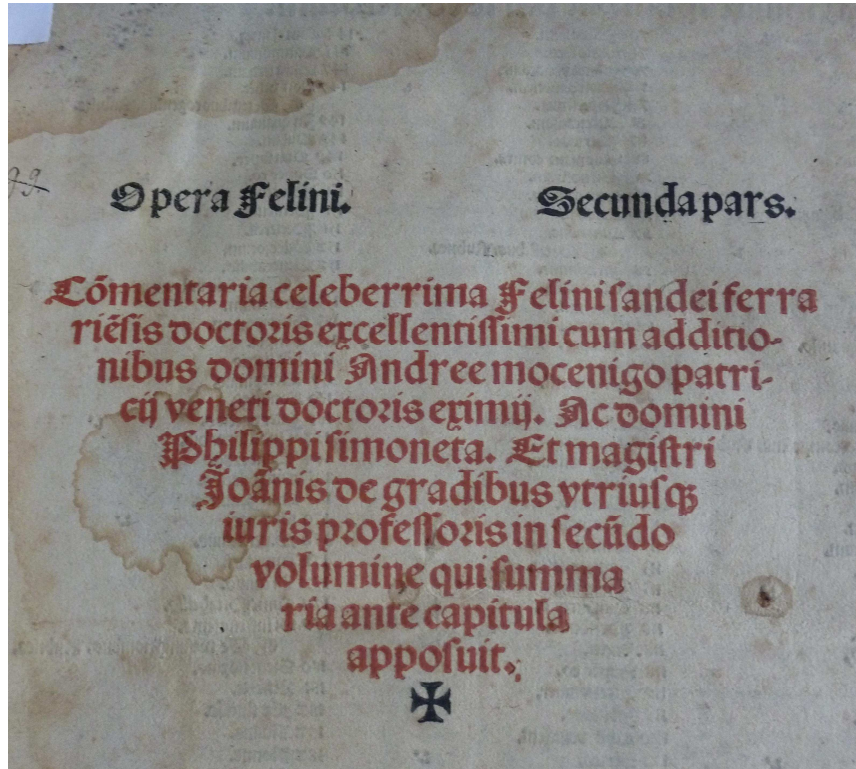 Opera Felini. Secunda pars.
Cōmentaria celeberrima Felini sandei ferra
riēsis doctoris excellentissimi cum additio-
nibus domini Andree mocenigo patri-
cij veneti doctoris eximij. Ac domini
Philippi simoneta. Et magistri
Joānis de gradibus vtriusqꝫ
iuris professoris in secūdo
volumine qui summa
ria ante capitula
apposuit.